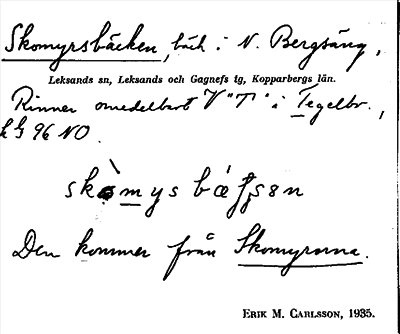 Skomyrsbäcken, bäck i N. Bergsäng,
Leksands sn, Leksands och Gagnefs tg, Kopparbergs län.
Rinner omedelbart V "T" i Tegelbr.,
96 NO.
Den kommer från Skomyrorna.
ERIK M. CARLSSON, 1935.